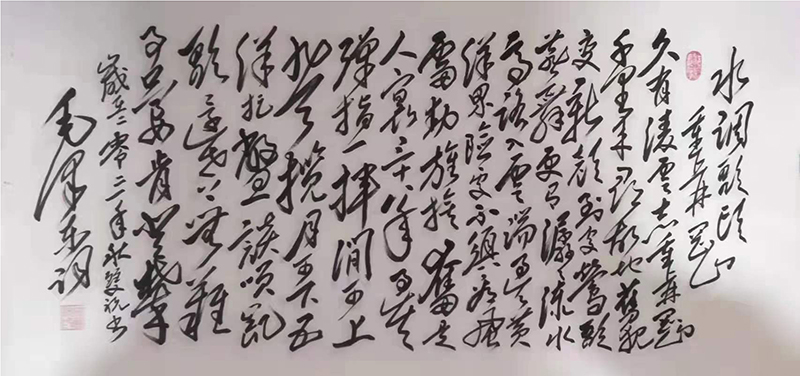 水调歌头
重上井冈山
久有凌雲志重上井冈山
千里来寻故地舊貌
变新颜到处莺歌
燕舞更有潺潺流水
高路入雲端过了黄
洋界险处不须看风
雷动旌旗奋是
人寰三十八年过去
弹指一挥间可上
九天揽月可下五
洋捉鳖谈笑凯
歌还世上无难
事只要肯登攀
歲在二零二年书
毛泽东词